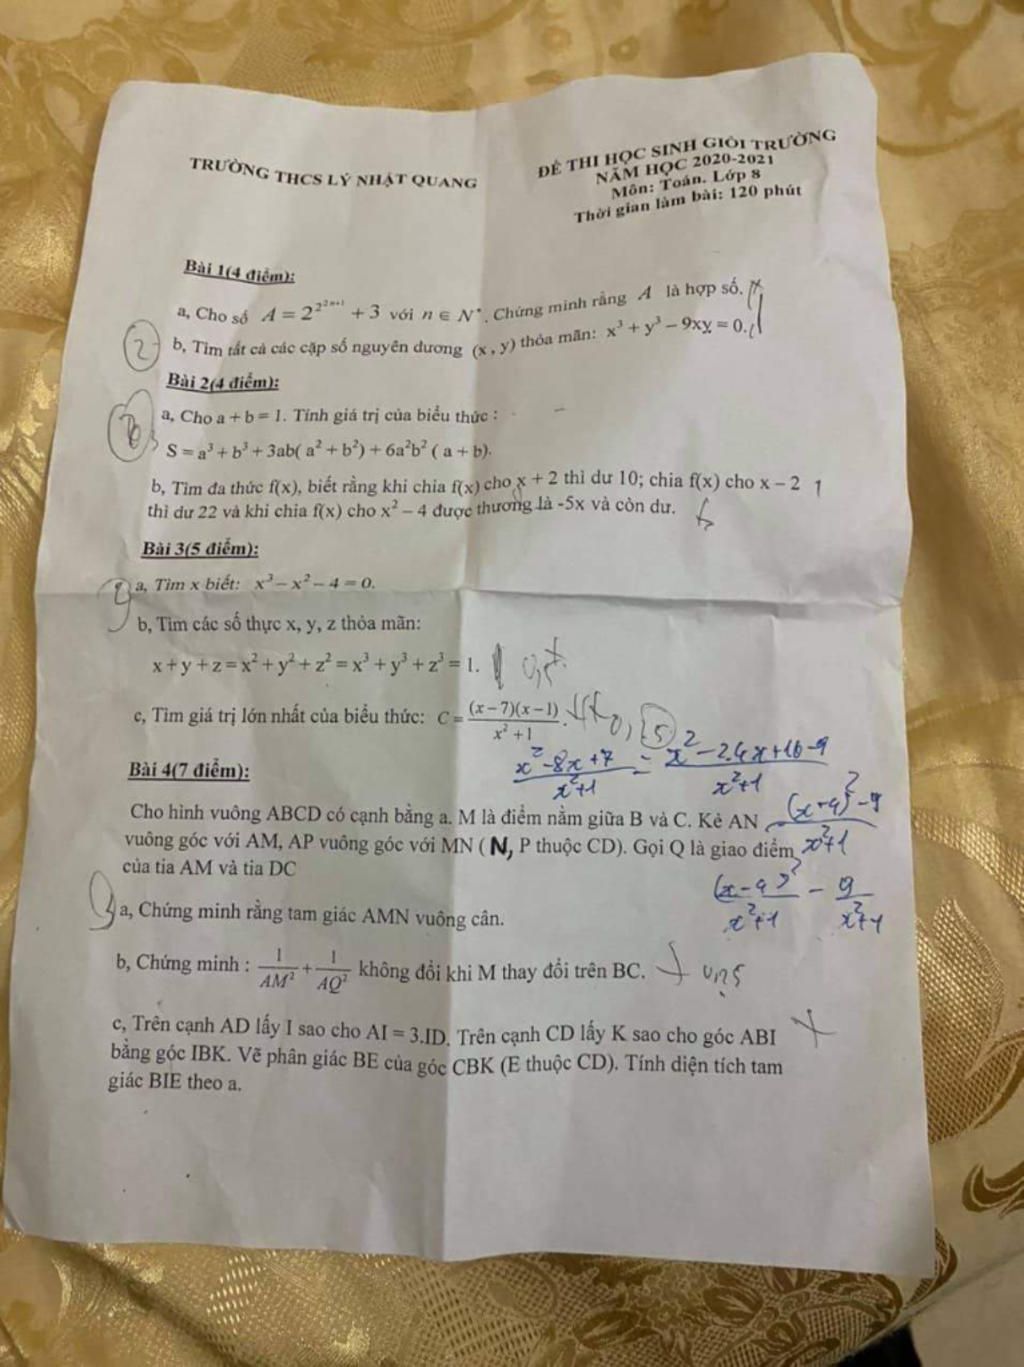 TRƯỜNG THCS LÝ NHẬT QUANG
ĐỀ THI HỌC SINH GIỎI TRƯỜNG
NĂM HỌC 2020-2021
Môn: Toán. Lớp 8
Thời gian làm bài: 120 phút
Bài 1(4 điểm):
a, Cho số A = 2^{2^{2n+1}} + 3 với n ∈ N*. Chứng minh rằng A là hợp số.
b, Tìm tất cả các cặp số nguyên dương (x, y) thỏa mãn: x³ + y³ − 9xy = 0.
2
Bài 2(4 điểm):
a, Cho a + b = 1. Tính giá trị của biểu thức :
S = a³ + b³ + 3ab( a² + b²) + 6a²b² ( a + b).
b, Tìm đa thức f(x), biết rằng khi chia f(x) cho x + 2 thì dư 10; chia f(x) cho x − 2
thì dư 22 và khi chia f(x) cho x² − 4 được thương là -5x và còn dư.
Bài 3(5 điểm):
a, Tìm x biết: x³ − x² − 4 = 0.
b, Tìm các số thực x, y, z thỏa mãn:
x + y + z = x² + y² + z² = x³ + y³ + z³ = 1.
c, Tìm giá trị lớn nhất của biểu thức: C = (x − 7)(x − 1) / x² + 1.
x² - 8x + 7 / x² + 1 = x² - 2.4x + 16 - 9 / x² + 1
Bài 4(7 điểm):
Cho hình vuông ABCD có cạnh bằng a. M là điểm nằm giữa B và C. Kẻ AN
(x - 4)² - 9 / x² + 1
vuông góc với AM, AP vuông góc với MN ( N, P thuộc CD). Gọi Q là giao điểm
của tia AM và tia DC
(x - 4)² / x² + 1 - 9 / x² + 1
a, Chứng minh rằng tam giác AMN vuông cân.
b, Chứng minh : 1/AM² + 1/AQ² không đổi khi M thay đổi trên BC.
0,25
c, Trên cạnh AD lấy I sao cho AI = 3.ID. Trên cạnh CD lấy K sao cho góc ABI
bằng góc IBK. Vẽ phân giác BE của góc CBK (E thuộc CD). Tính diện tích tam
giác BIE theo a.